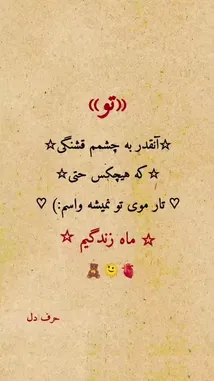 ((تو))
☆آنقدر به چشمم قشنگی☆
☆که هیچکس حتی☆
♡ تار موی تو نمیشه واسم:) ♡
☆ ماه زندگیم ☆
🧸🫠🫀
حرف دل